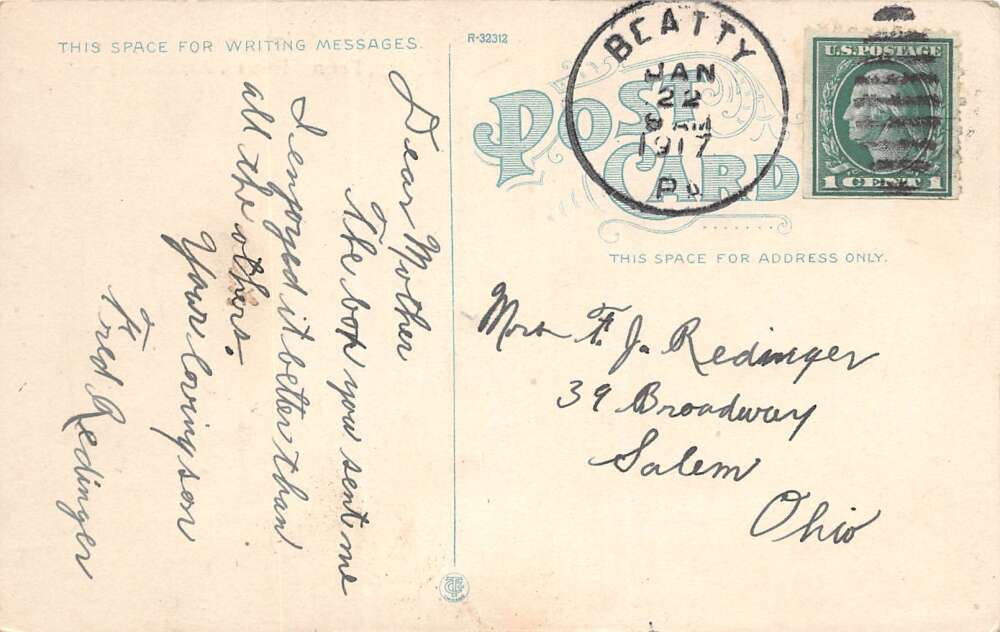 THIS SPACE FOR WRITING MESSAGES.
R-32312
Dear Mother
The box you sent me
I enjoyed it better than
all the others.
Your loving son
Fred Redinger
POST CARD
BEATTY
JAN
22
8 AM
1917
Pa.
U.S. POSTAGE
1 CENT 1
THIS SPACE FOR ADDRESS ONLY.
Mrs F. J. Redinger
39 Broadway
Salem
Ohio